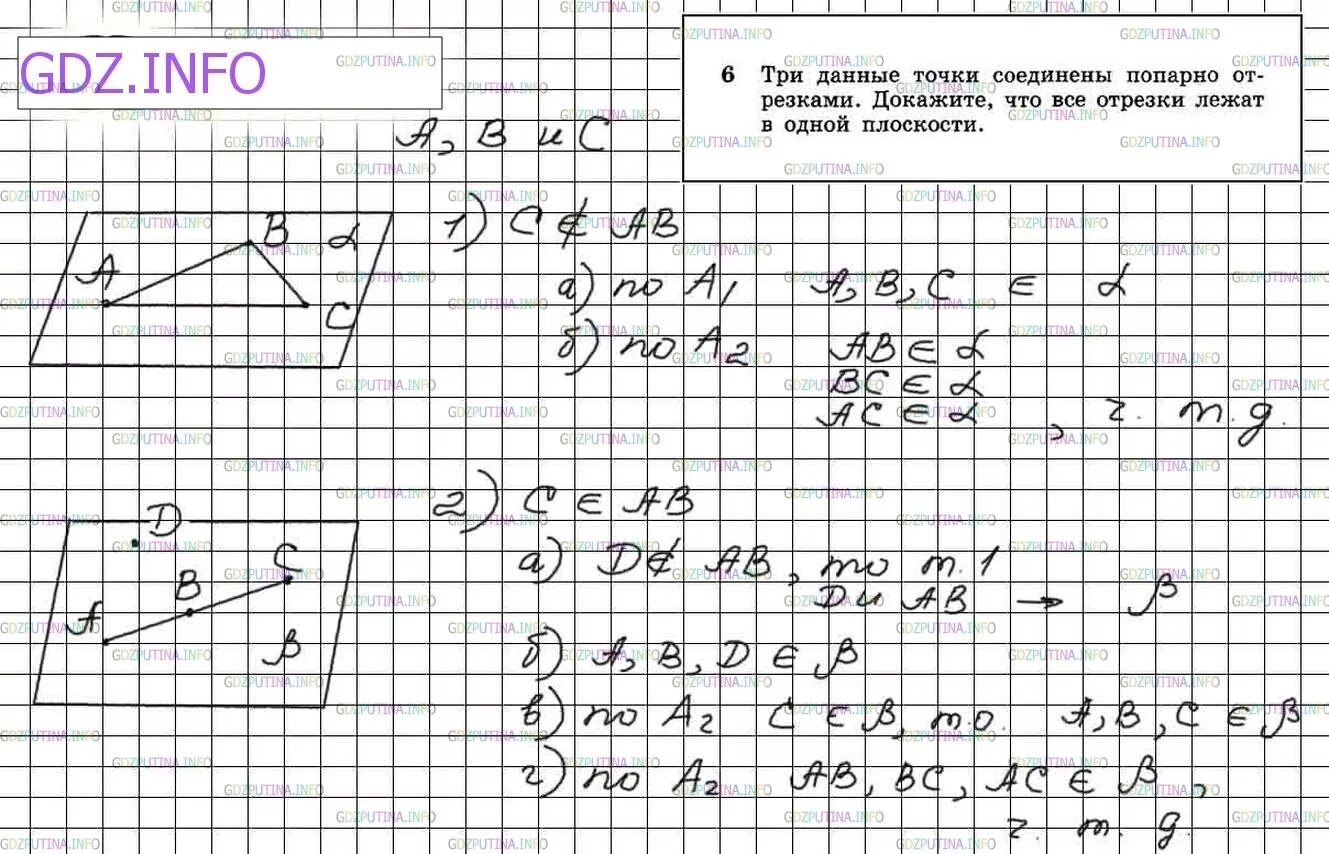 GDZ.INFO
6 Три данные точки соединены попарно от-
резками. Докажите, что все отрезки лежат
в одной плоскости.
A, B и C
1) C ∉ AB
а) по A1 A, B, C ∈ α
б) по A2 AB ∈ α
BC ∈ α
AC ∈ α, ч. т. д.
A B C α
2) C ∈ AB
а) D ∉ AB, то т. 1
D и AB → β
б) A, B, D ∈ β
в) по A2 C ∈ β, т.о. A, B, C ∈ β
г) по A2 AB, BC, AC ∈ β,
ч. т. д.
D
C
B
A
β
GDZPUTINA.INFO